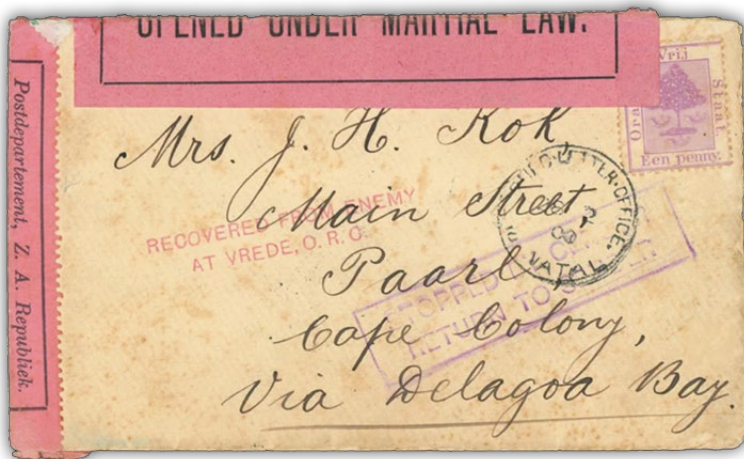 OPENED UNDER MARTIAL LAW.
Postdepartement, Z. A. Republiek.
Vrij
Staat
Een penny.
Mrs. J. H. Kok,
Main Street,
Paarl,
Cape Colony,
Via Delagoa Bay.
RECOVERED FROM ENEMY
AT VREDE, O. R. C.
OFFICE.
NATAL
STOPPED BY
RETURN TO SENDER